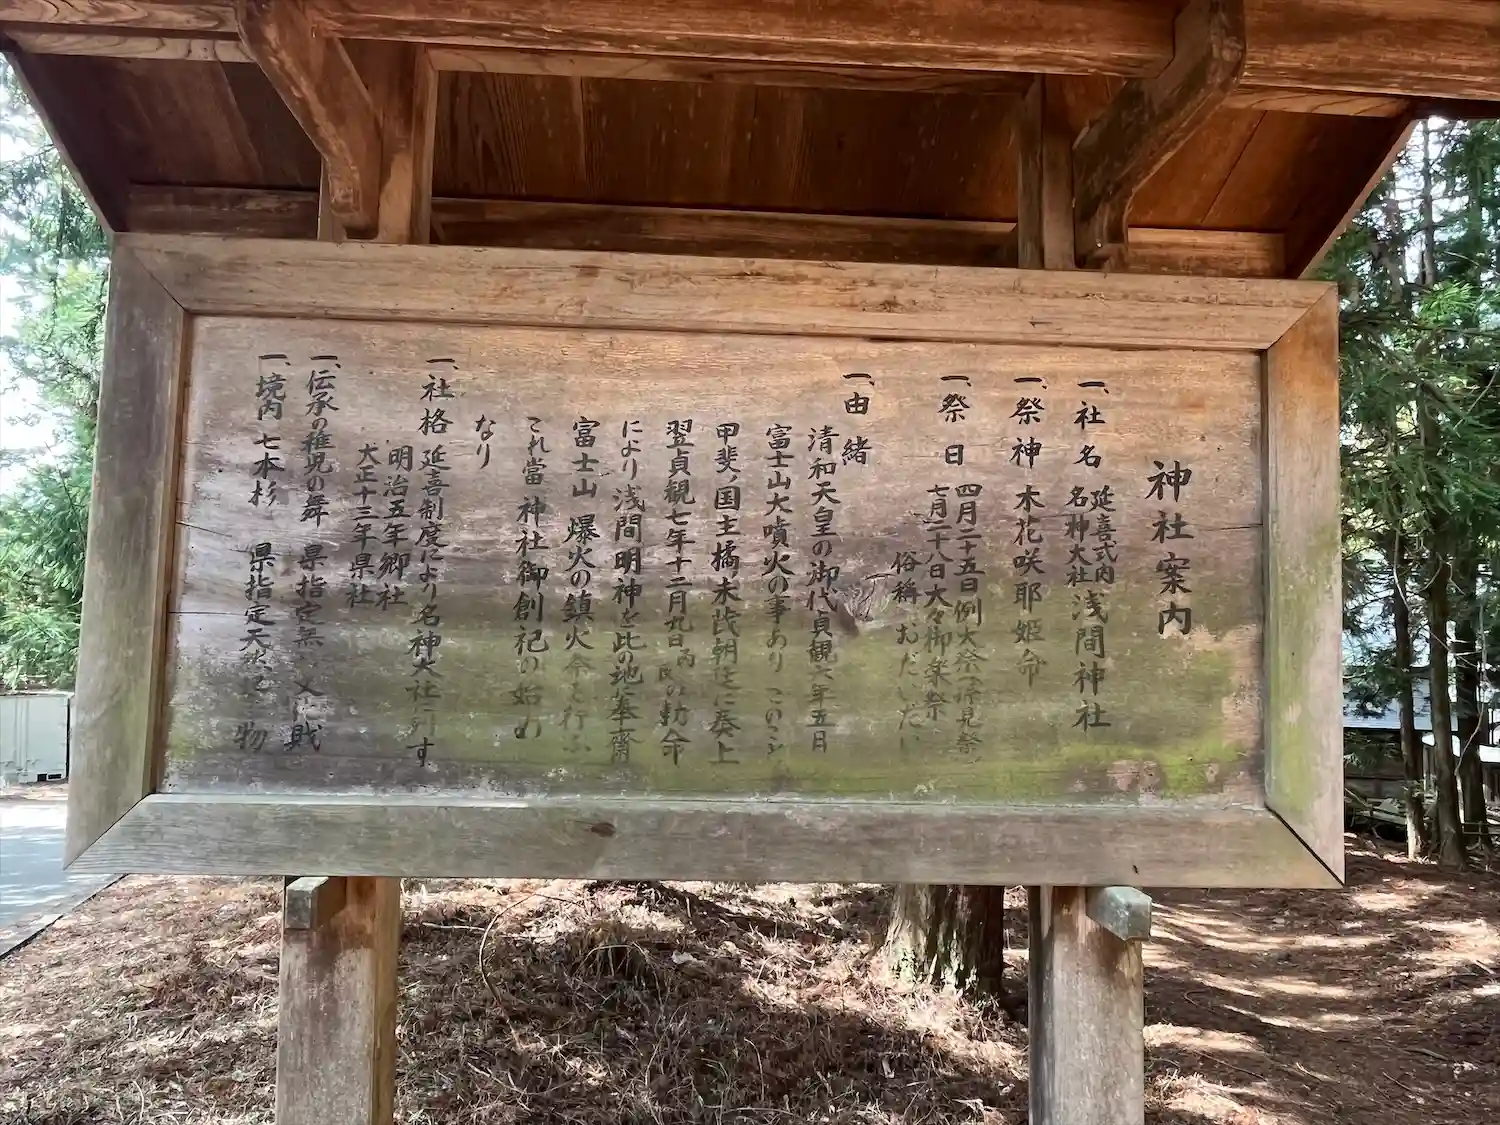 神社案内
一、社名 延喜式内 名神大社 浅間神社
一、祭神 木花咲耶姫命
一、祭日 四月二十五日例大祭
七月二十八日大々御楽祭
俗稱、おだいだい
一、由緒
清和天皇の御代貞観六年五月
富士山大噴火の事あり このこと
甲斐ノ国主橘末茂朝廷に奏上
翌貞観七年十二月九日丙 の勅命
により浅間明神を此の地 奉齋
富士山 爆火の鎮火祭を行ふ
これ當神社御創祀の始め
なり
一、社格 延喜制度により名神大社に列す
明治五年郷社
大正十三年県社
一、伝承の稚児の舞 県指定無 文化財
一、境内 七本杉 県指定天然記 物